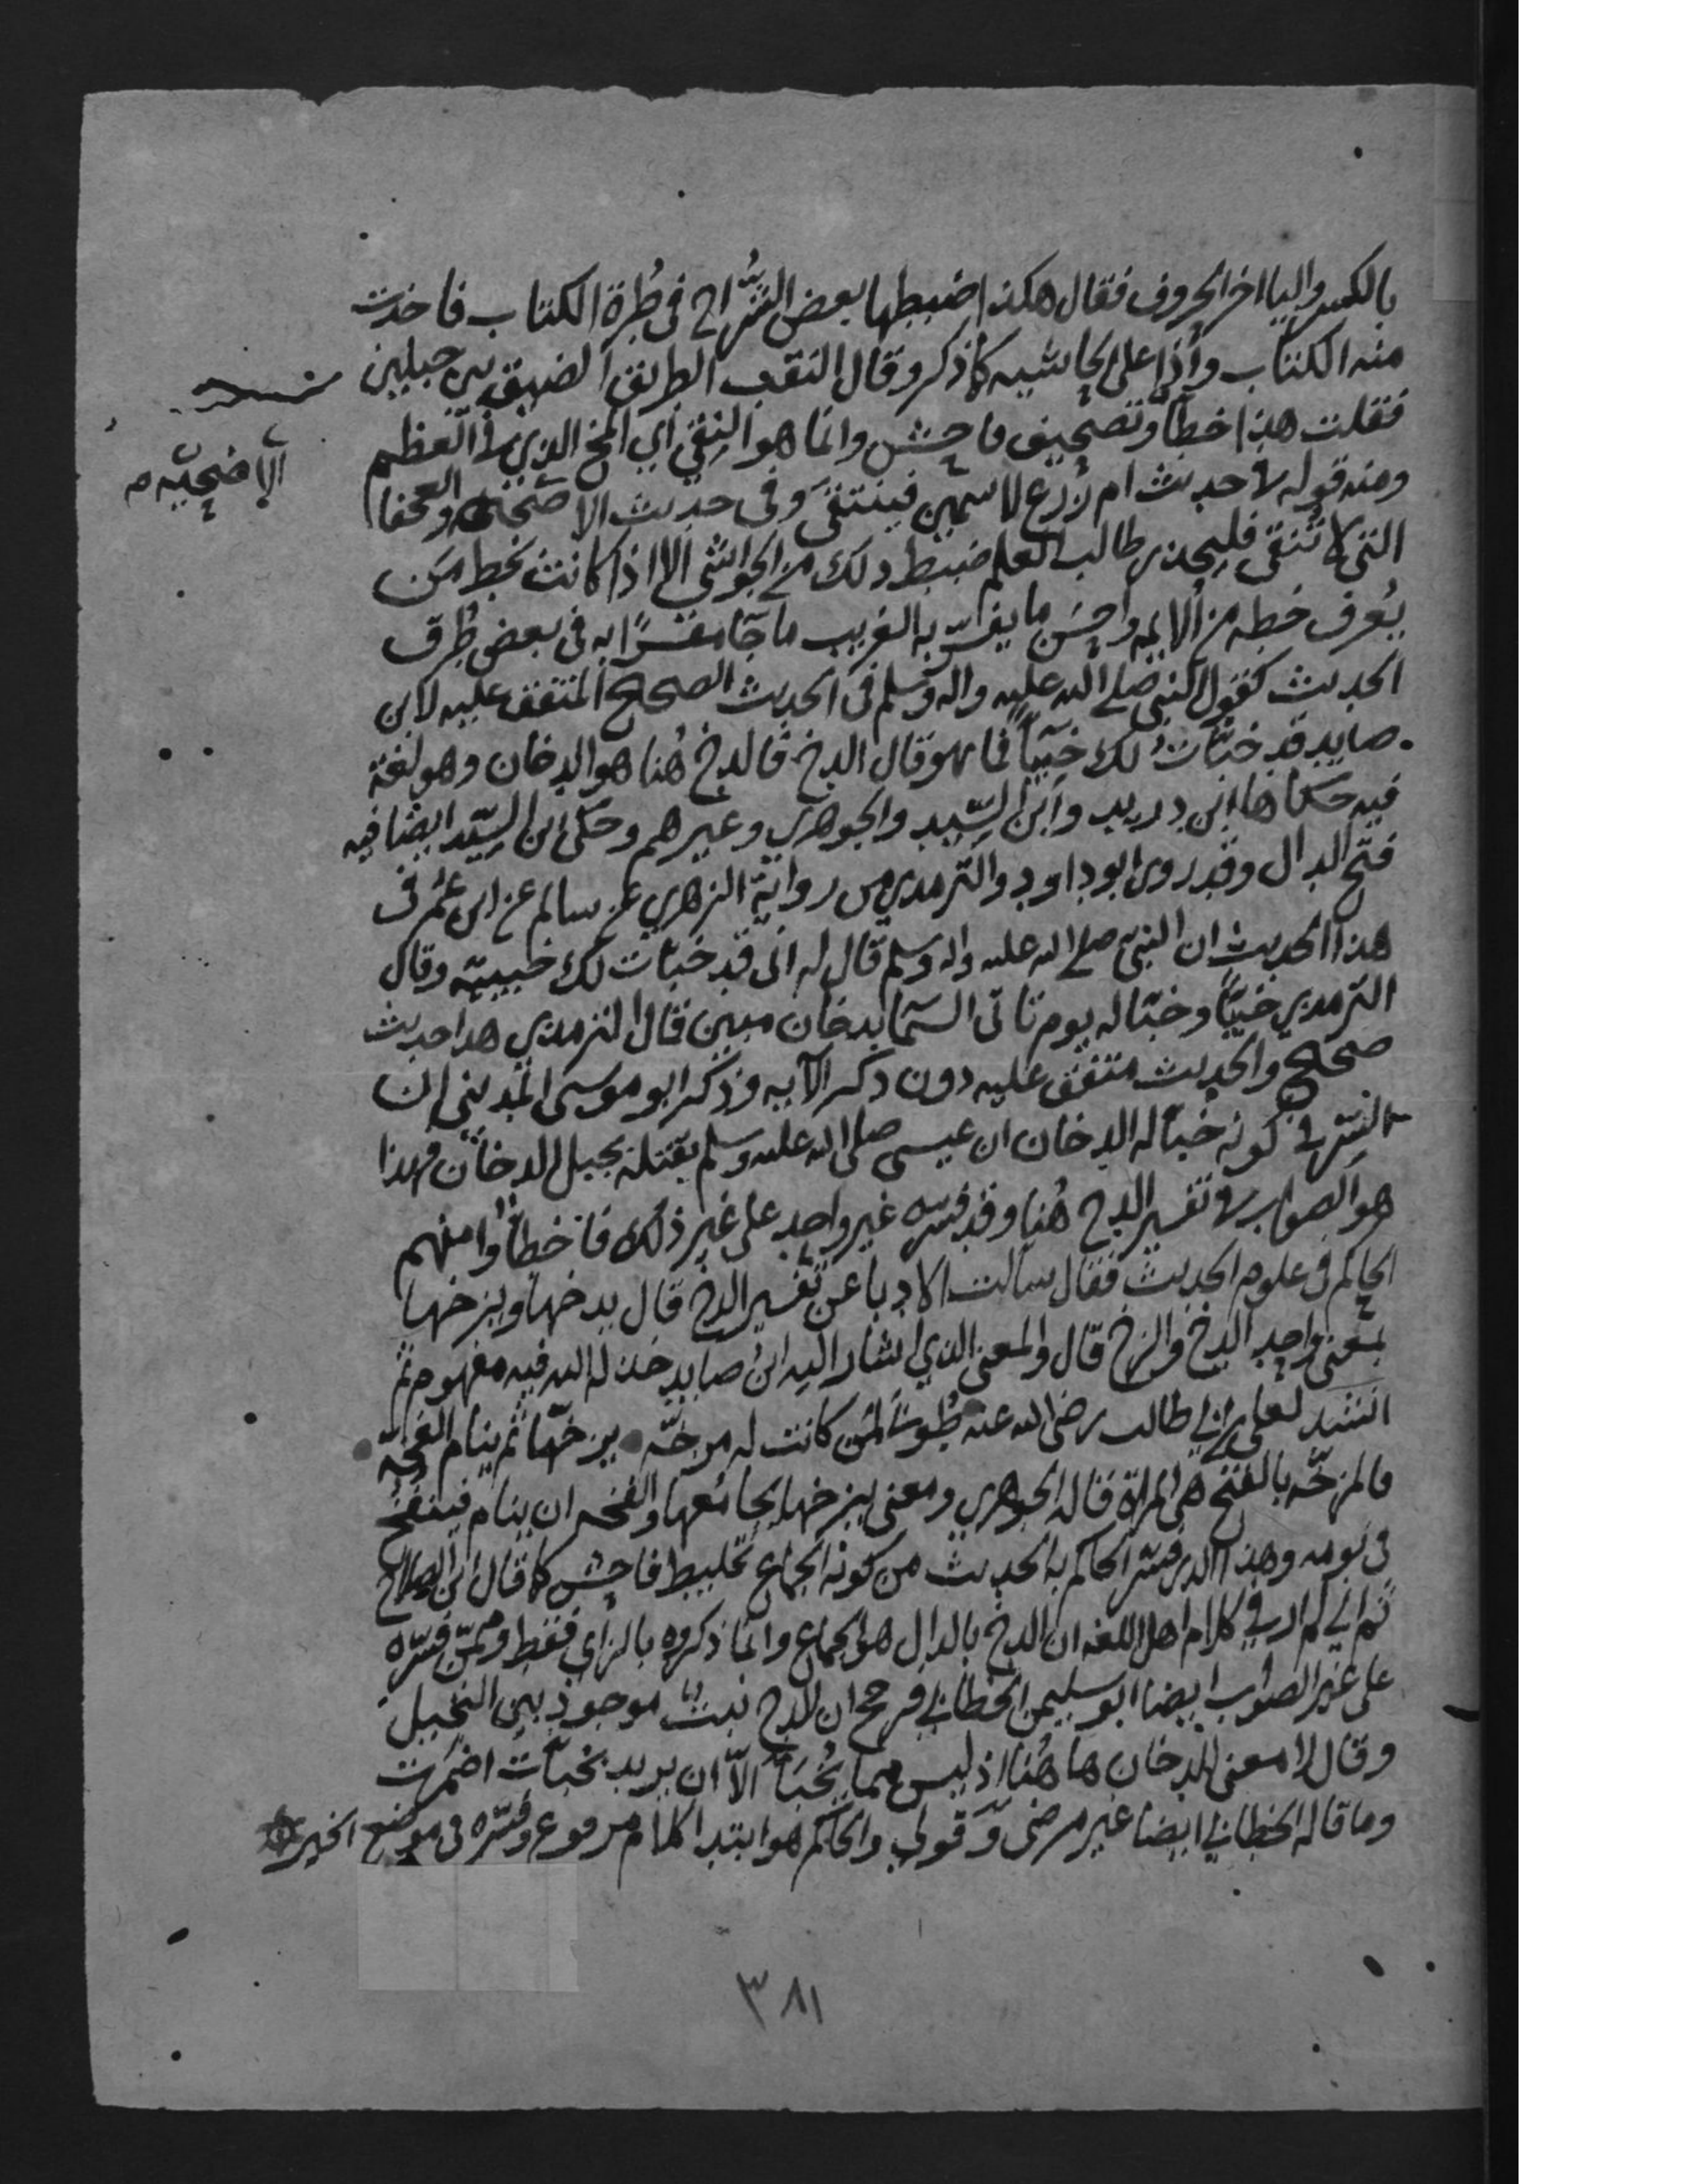 بالكسر واليا اخر الحروف فقال هكذا ضبطها بعض الشُّراح في طُرة الكتاب فاخذت
منه الكتاب واذا على الحاشيه كما ذكر وقال النقب الطريق الضيق بين جبلين
فقلت هذا خطأ وتصحيف فاحش وانما هو النِقي أي المخ الذي في العظم
ومنه قوله في حديث ام زرع لا سمين فينتقى وفي حديث الاضحية والعجفا
الاضحيه
التي لا تنقى فليحذر طالب العلم ضبط ذلك من الحواشي الا اذا كانت بخط من
يُعرف خطه من الايمه واحسن ما يفسر به الغريب ما جآ مفسرًا به في بعض طُرق
الحديث كقول النبي صلى الله عليه واله وسلم في الحديث الصحيح المتفق عليه لابن
صايد قد خبأتُ لك خبيأً فما هو قال الدخ فالدخ هُنا هو الدخان وهو لغة
فيه حكاها ابن دريد وابن السِّيد والجوهري وغيرهم وحكى ابن السِّيد ايضا فيه
فتح الدال وقد روى ابو داود والترمذي من رواية الزهري عن سالم عن ابن عُمر في
هذا الحديث ان النبي صلى الله عليه واله وسلم قال له اني قد خبأت لك خبيئة وقال
الترمذي خبيًّا وخبّا له يوم تاتي السّما بدخان مبين قال الترمذي هذا حديث
صحيح والحديث متفق عليه دون ذكر الآيه وذكر ابو موسى المديني ان
السّر في كونه خبأ له الدخان ان عيسى صلى الله عليه وسلم يقتله بجبل الدخان فهذا
هو الصواب في تفسير الدخ هُنا وقد فسّره غير واحد على غير ذلك فاخطأوا منهم
الحاكم في علوم الحديث فقال سألت الادبا عن تفسير الدخ قال يدخها ويزخها
بمعنى واحد الدخ والزخ قال والمعنى الذي اشار اليه ابن صايد خذله الله فيه مفهوم ثم
انشد لعلي بن ابي طالب رضي الله عنه طُوبىَ لمن كانت له مزخّه يزخّها ثم ينام الفخّه
فالمزخّه بالفتح هي المراة قاله الجوهري ومعنى يزخها يجامعها والفخه ان ينام فينفخ
في نومه وهذا الذي فسّر الحاكم به الحديث من كونه الجماع تخليط فاحش كما قال ابن الصلاح
ثم اني لم ار في كلام اهل اللغه ان الدخ بالدال هو الجماع وانما ذكروه بالزاي فقط وممّن فسّره
على غير الصواب ايضا ابو سليمن الخطابي فرجح ان الدخ نبتٌ موجودٌ بين النخيل
وقال لا معنى للدخان ها هُنا اذ ليس مما يُخبأ الاّ ان يريد بخبأتُ اضمرت
وما قاله الخطابي ايضا غير مرضى وَقولي والحاكم هو ابتدا كلام مرفوع وفسّره في موضع الخبر
٣٨١